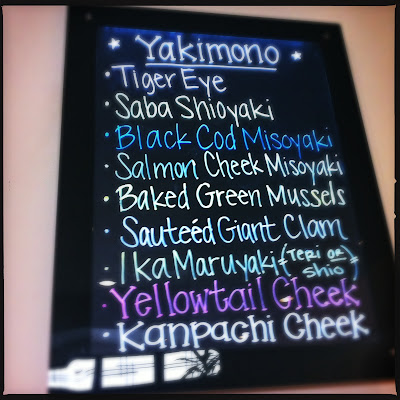 * Yakimono *
• Tiger Eye
• Saba Shioyaki
• Black Cod Misoyaki
• Salmon Cheek Misoyaki
• Baked Green Mussels
• Sauteéd Giant Clam
• Ika Maruyaki (Teri or Shio)
• Yellowtail Cheek
• Kanpachi Cheek